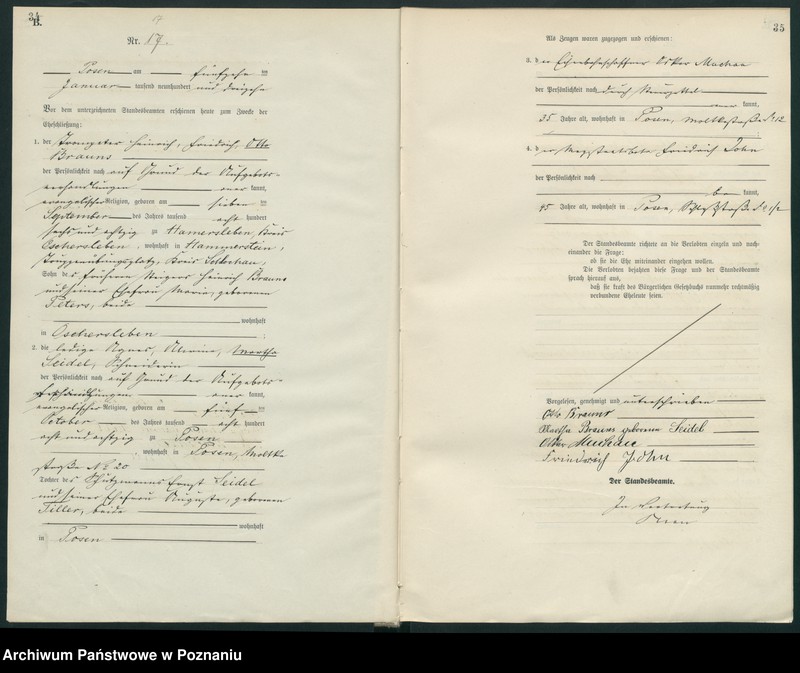 34
B.
17
Nr. 17.
Posen am fünfzehn ten
Januar tausend neunhundert und dreizehn
Vor dem unterzeichneten Standesbeamten erschienen heute zum Zwecke der
Eheschließung:
1. der Trompeter Heinrich, Friedrich, Otto
Brauns
der Persönlichkeit nach auf Grund der Aufgebots-
verhandlungen aner kannt,
evangelischer Religion, geboren am sieben ten
September des Jahres tausend acht hundert
sechs und achtzig zu Hamersleben, Kreis
Oschersleben, wohnhaft in Hammerstein,
Truppenübungsplatz, Kreis Schlochau,
Sohn des früheren Steigers Heinrich Brauns
und seiner Ehefrau Maria, geborenen
Peters, beide
wohnhaft
in Oschersleben
2. die ledige Agnes, Martha
Seidel, Schneiderin
der Persönlichkeit nach auf Grund der Aufgebots-
verhandlungen aner kannt,
evangelischer Religion, geboren am fünf ten
October des Jahres tausend acht hundert
acht und achtzig zu Posen
, wohnhaft in Posen, Moltke
straße No 20
Tochter des Schutzmanns Ernst Seidel
und seiner Ehefrau Auguste, geborenen
Tiller, beide
wohnhaft
in Posen
35
Als Zeugen waren zugezogen und erschienen:
3. der Oskar Machau
der Persönlichkeit nach durch
aner kannt,
35 Jahre alt, wohnhaft in Posen, Moltkestraße 12
4. der Magistratsbote Friedrich John
der Persönlichkeit nach
be kannt,
45 Jahre alt, wohnhaft in Posen,
Der Standesbeamte richtete an die Verlobten einzeln und nach-
einander die Frage:
ob sie die Ehe miteinander eingehen wollen.
Die Verlobten bejahten diese Frage und der Standesbeamte
sprach hierauf aus,
daß sie kraft des Bürgerlichen Gesetzbuchs nunmehr rechtmäßig
verbundene Eheleute seien.
Vorgelesen, genehmigt und unterschrieben
Otto Brauns
Martha Brauns geborene Seidel
Oskar Machau
Friedrich John
Der Standesbeamte.
In Vertretung
Archiwum Państwowe w Poznaniu